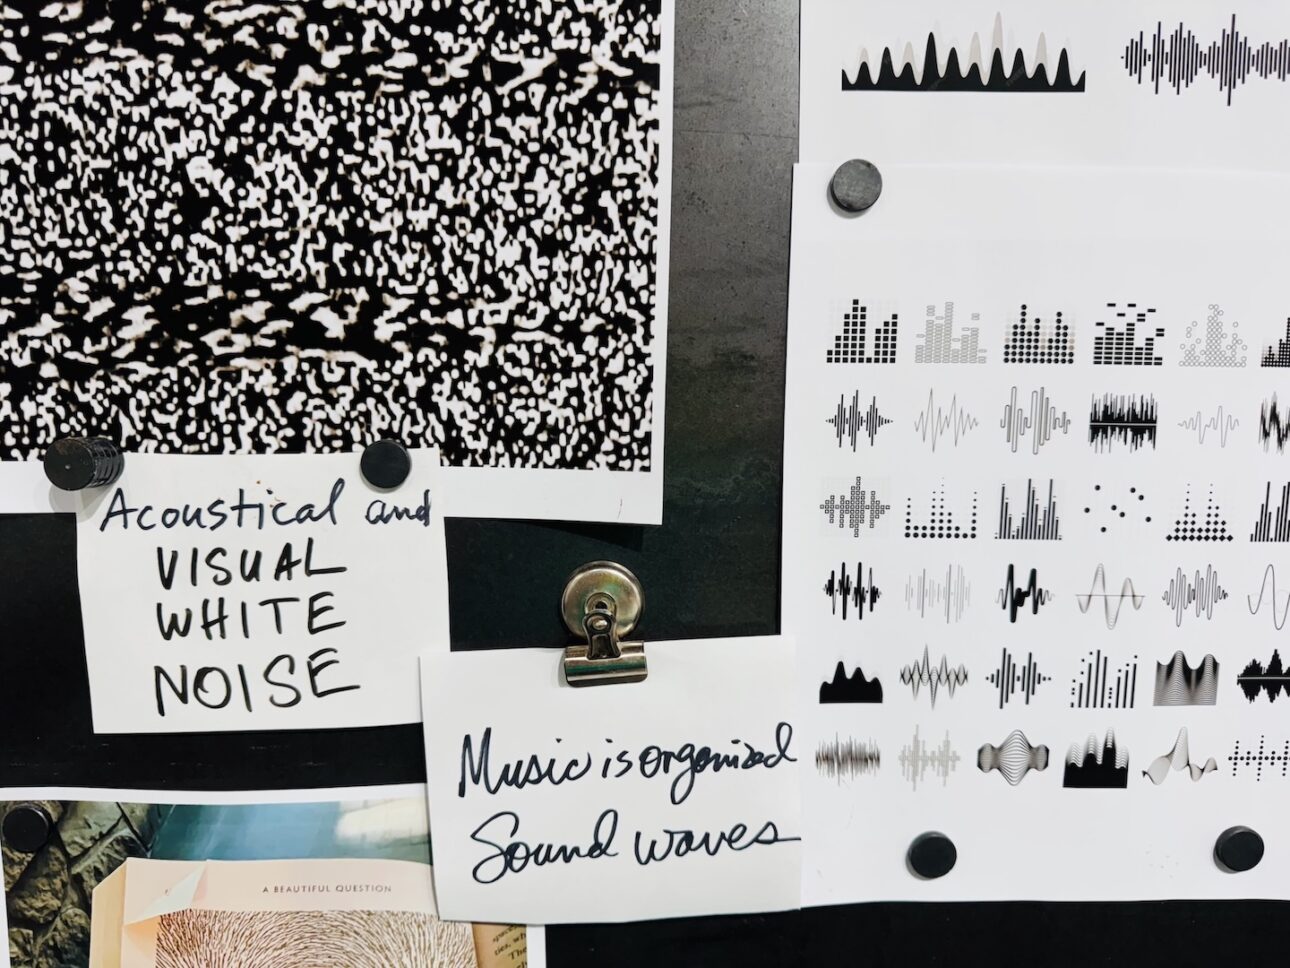 Acoustical and
VISUAL
WHITE
NOISE
Music is organized
Sound waves
A BEAUTIFUL QUESTION